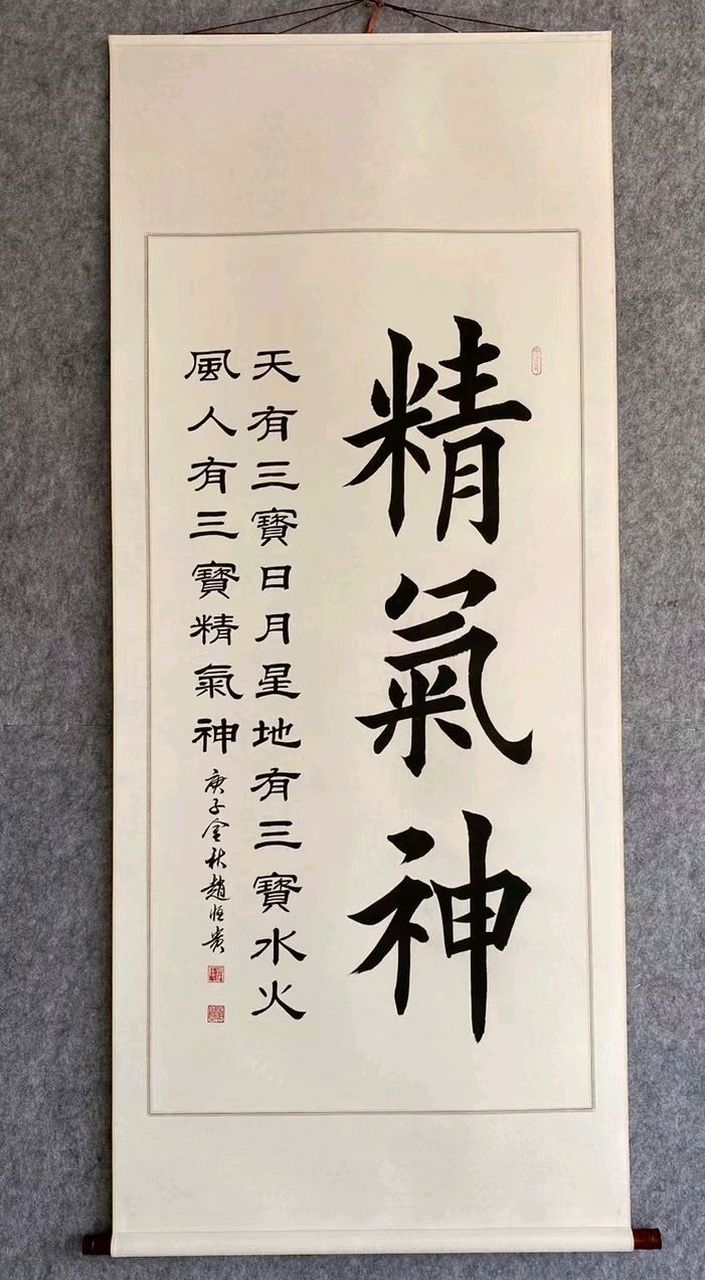 精氣神
天有三寶日月星地有三寶水火
風人有三寶精氣神
庚子金秋趙恒貴